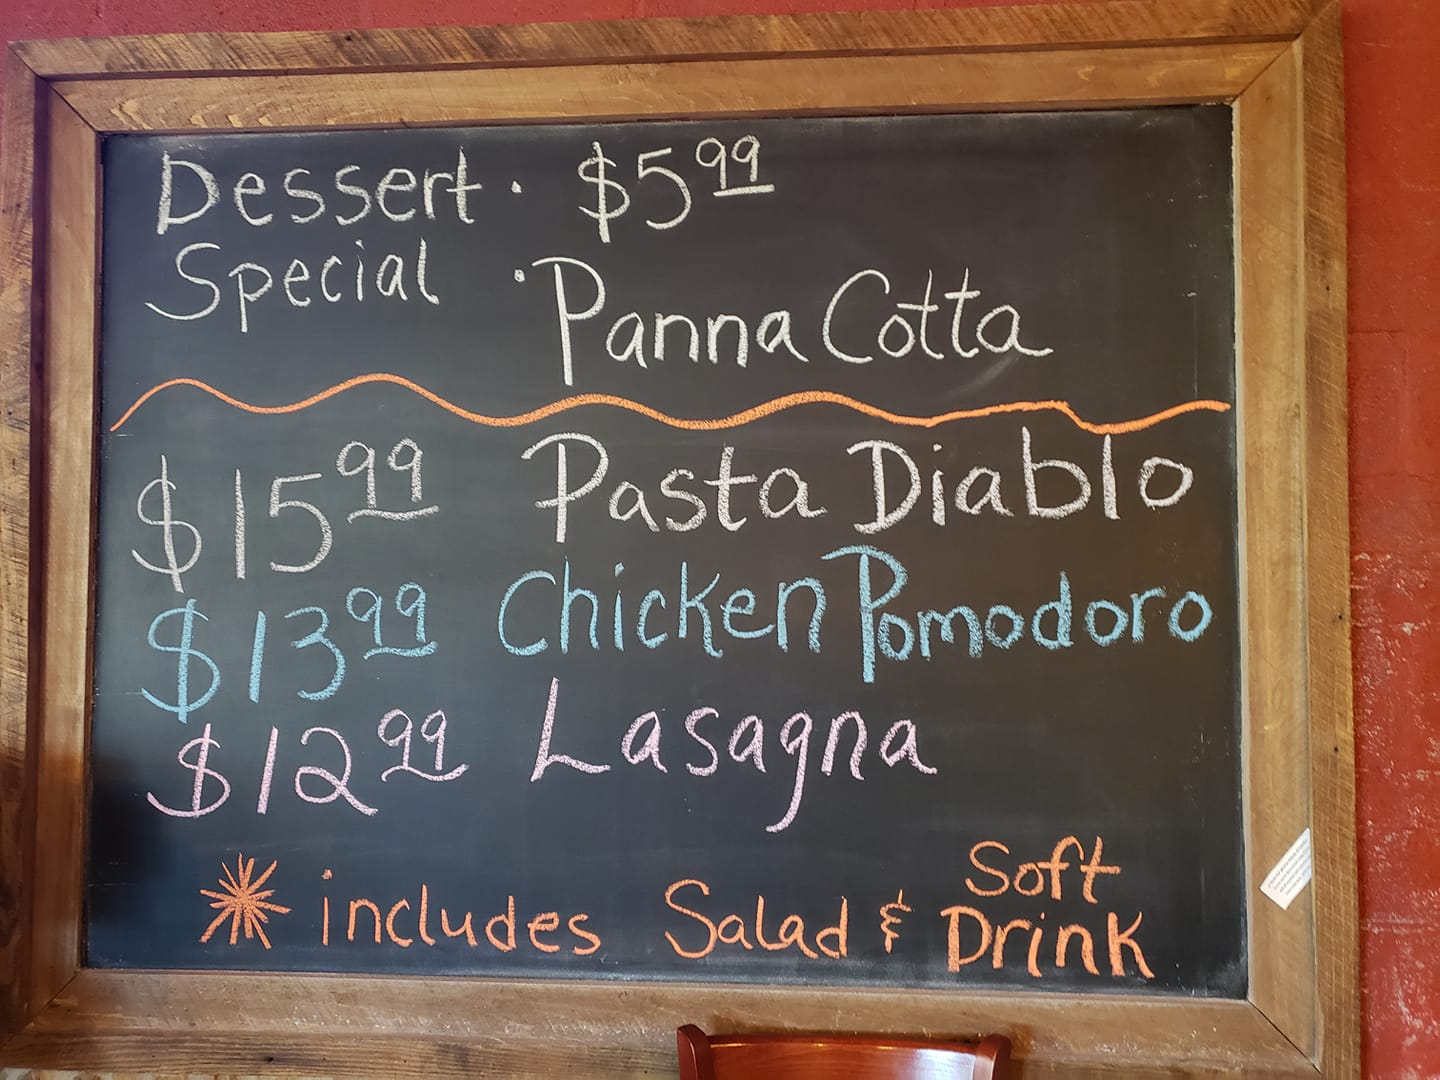 Dessert · $5.99
Special · Panna Cotta
$15.99 Pasta Diablo
$13.99 Chicken Pomodoro
$12.99 Lasagna
* includes Salad & Soft Drink